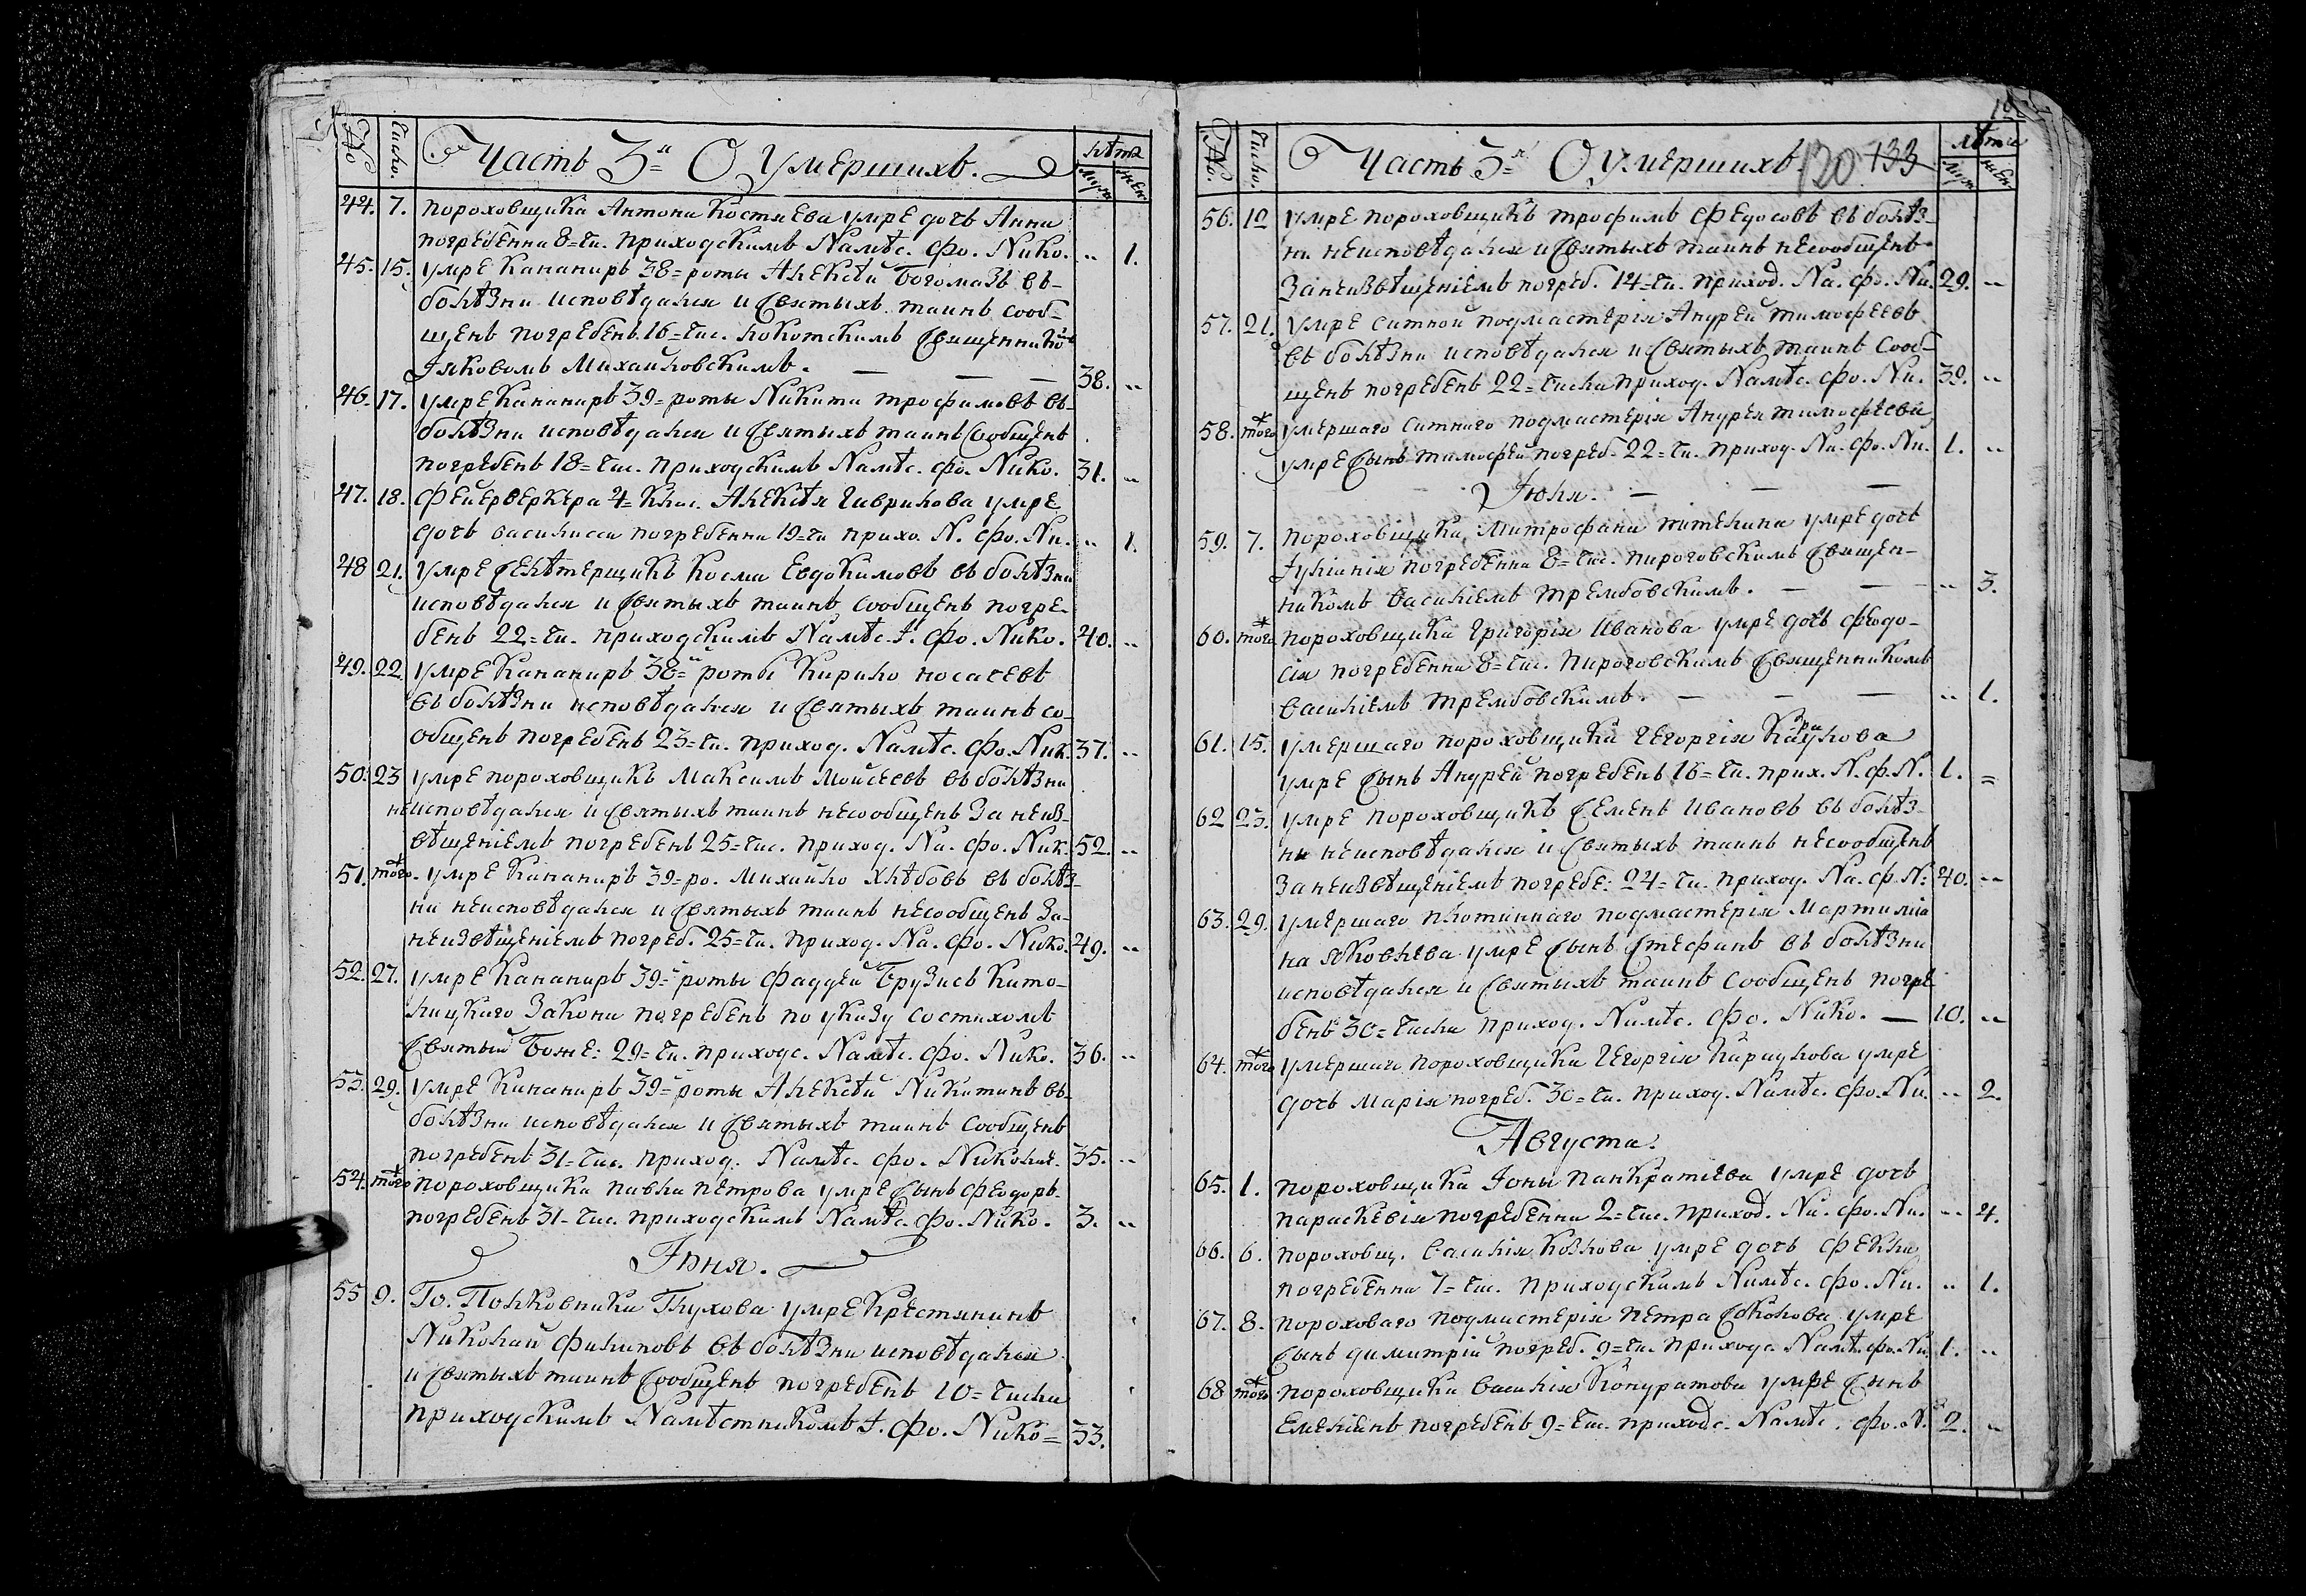 № Число. Часть 3-я О Умершихъ. лѣта
муж жен
44. 7. Пороховщика Антона Костюева умре дочь Анна
погребенна 8= чи. приходскимъ Намѣс. Фо. Нико. .. 1.
45. 15. умре Канапиръ 38= роты Алексѣй Богомазъ въ-
болѣзни исповѣдался и Святыхъ таинъ сооб-
щенъ погребенъ 16= чис. локотскимъ Священнико
Іяковомъ Михайловскимъ. — — — 38. ..
46. 17. умре Канапиръ 39= роты Никита трофимовъ въ-
болѣзни исповѣдался и Святыхъ таинъ Сообщенъ
погребенъ 18= чис. приходскимъ Намѣс. фо. Нико. 31. ..
47. 18. Фейерверкера 4= клас. Алексѣя Гаврилова умре
дочь василисса погребенна 19= чи прихо. Н. фо. Ни. .. 1.
48 21. умре Селѣтерщикъ Косма Евдокимовъ въ болѣзни
исповѣдался и Святыхъ таинъ сообщенъ погре-
бенъ 22= чи. приходскимъ Намѣс. І. Фо. Нико. 40. ..
49. 22. умре Канапиръ 38= роты Кирило носачевъ
въ болѣзни исповѣдался и Святыхъ таинъ со-
общенъ погребенъ 23= чи. приход. Намѣс. Фо. Ник. 37. ..
50. 23 умре пороховщикъ Максимъ Мойсеевъ въ болѣзни
неисповѣдался и Святыхъ таинъ несообщенъ За неиз-
вѣщеніемъ погребенъ 25= чис. приход. На. фо. Ник. 52. ..
51. того. умре Канапиръ 39= ро. Михайло хлѣбовъ въ болѣз-
ни неисповѣдался и Святыхъ таинъ несообщенъ За-
неизвѣщеніемъ погреб. 25= чи. приход. На. фо. Нико. 49. ..
52. 27. умре Канапиръ 39= роты Фаддей Брузисъ Като-
лицкаго Закона погребенъ по указу состихомъ
Святый Боже: 29= чи. приходс. Намѣс. фо. Нико. 36. ..
53. 29. умре Канапиръ 39= роты Алексѣй Никитинъ въ-
болѣзни исповѣдался и Святыхъ таинъ Сообщенъ
погребенъ 31= чис. приход. Намѣс. фо. Николае. 35. ..
54. того пороховщика павла петрова умре Сынъ Феодоръ
погребенъ 31- чис. приходскимъ Намѣс. фо. Нико. 3. ..
Іюня.
55 9. Го. Полковника Глухова умре Крестянинъ
Николай Филиповъ въ болѣзни исповѣдался
и Святыхъ таинъ Сообщенъ погребенъ 10= числа
приходскимъ Намѣстникомъ І. фо. Нико= 33.
№. Число. Часть 3= я О умершихъ. 120 133 лѣта
муж жен
56. 12 умре пороховщикъ трофимъ Федосовъ въ болѣз-
ни неисповѣдался и Святыхъ таинъ несообщенъ
Занеизвѣщеніемъ погреб. 14= чи. приход. На. фо. Ни. 29. ..
57. 21. умре ситной подмастерія Андрей тимофеевъ
въ болѣзни исповѣдался и Святыхъ таинъ Сооб-
щенъ погребенъ 22= числа приход. Намѣс. фо. Ни. 39. ..
58. того умершаго Ситнаго подмастерія Андрея тимофеева
умре Сынъ тимофей погреб. 22= чи. приход. На. фо. Ни. 1. ..
Іюля. — — —
59. 7. пороховщика Митрофана тителина умре дочь
Іуліанія погребенна 8= чис. пироговскимъ Священ-
никомъ Василіемъ трембовскимъ. — — .. 3.
60. того пороховщика Григорія Иванова умре дочь Федо-
сія погребенна 8= чис. пироговскимъ Священникомъ
Василіемъ трембовскимъ. — — — .. 1.
61. 15. умершаго пороховщика Георгія Караулова
умре Сынъ Андрей погребенъ 16= чи. прих. Н. ф. Н. 1. =
62 23. умре пороховщикъ Семенъ Ивановъ въ болѣз-
ни неисповѣдался и Святыхъ таинъ несообщенъ
Занеизвѣщеніемъ погребе: 24= чи. приход. На. ф. Н: 40. ..
63. 29. умершаго плотничнаго подмастерія Мартиміа
на яковлева умре Сынъ Стефанъ въ болѣзни
исповѣдался и Святыхъ таинъ Сообщенъ погре
бенъ 30= числа приход. Намѣс. фо. Нико. — 10. ..
64. того умершаго пороховщика Георгія Караулова умре
дочь Марія погреб. 30= чи. приход. Намѣс. фо. Ни. .. 2.
Августа.
65. 1. пороховщика Іоны Панкратьева умре дочь
параскевія погребенна 2= чис. приход. На. фо. Ни. .. 4.
66. 6. пороховщ. Василія Козлова умре дочь Фекла
погребенна 7= чис. приходскимъ Намѣс. фо. Ни. .. 1.
67. 8. пороховаго подмастерія петра Соколова умре
Сынъ димитрій погреб. 9= чи. приходс. Намѣ. фо. Ни. 1. ..
68 того пороховщика Василія Кондратова умре Сынъ
Емеліанъ погребенъ 9= чис. приходс. Намѣс. фо. Н. 2. ..